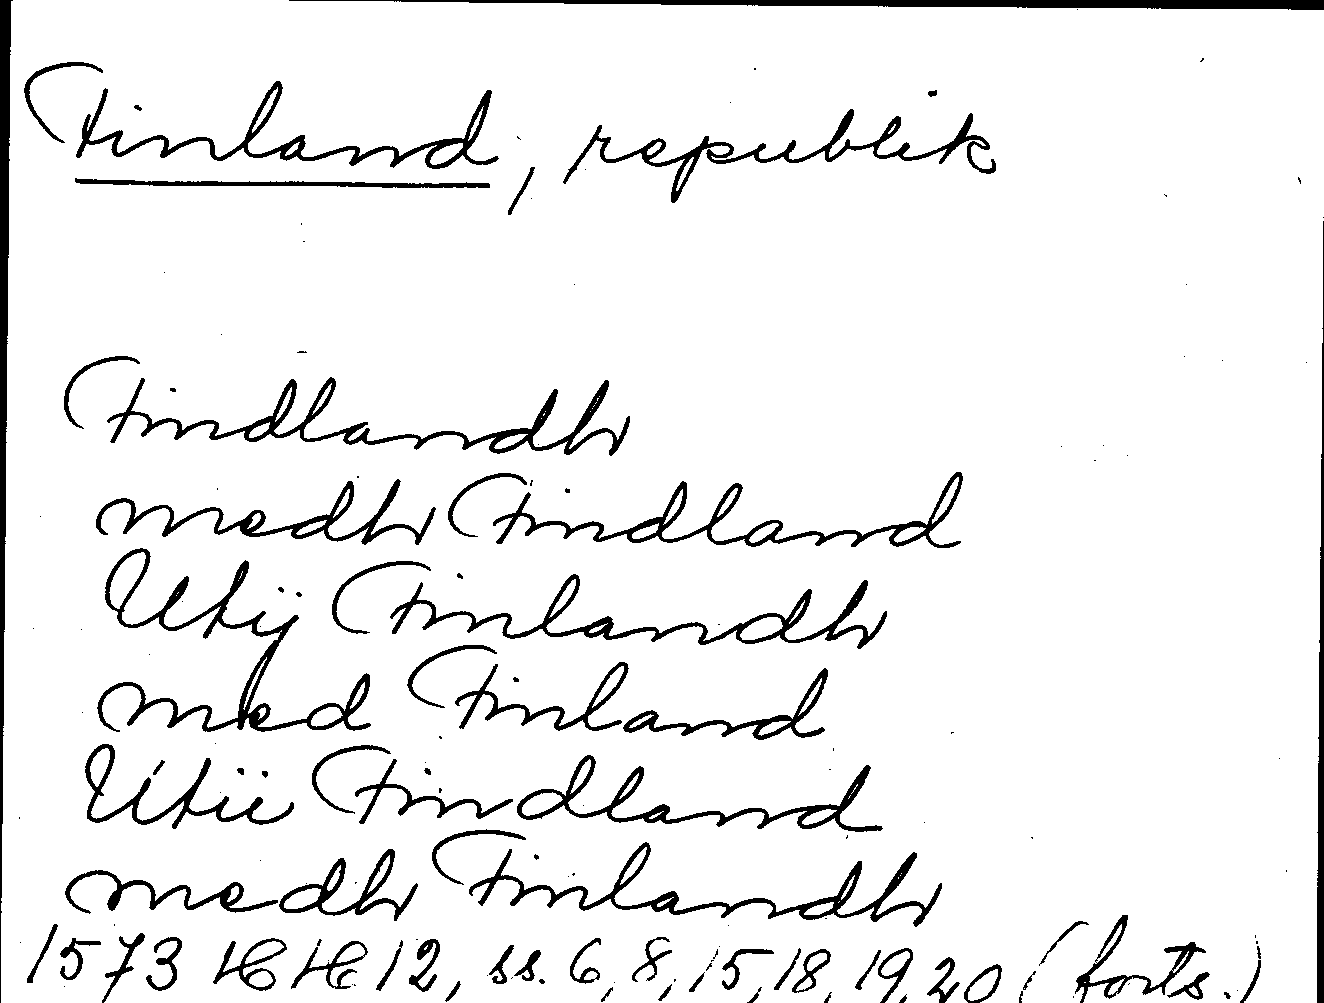 Finland, republik
Findlandh
medh Findland
Utij Finlandh
med Finland
Utii Findland
medh Finlandh
1573 HH 12, ss. 6, 8, 15, 18, 19, 20 (forts.)